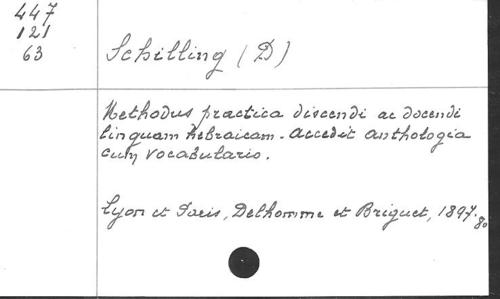 447
121
63
Schilling (D)
Methodus practica discendi ac docendi
linguam hebraicam. Accedit anthologia
cum vocabulario.
Lyon et Paris, Delhomme et Briguet, 1897. 8o